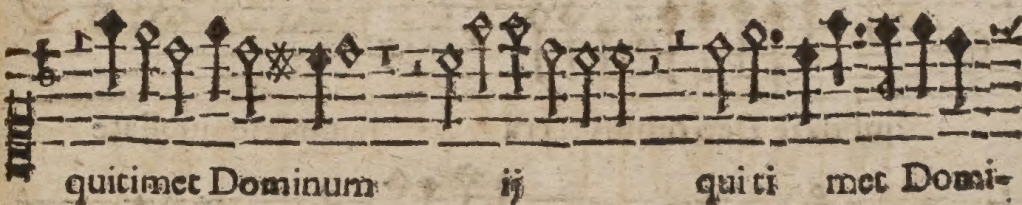 quitimet Dominum ij qui ti met Domi-